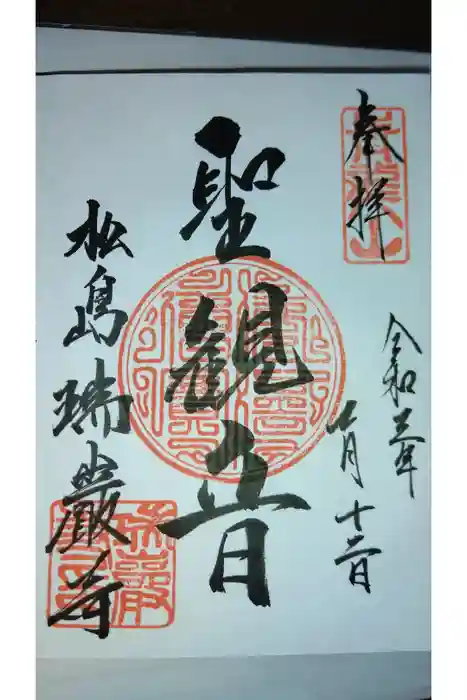 奉拝
令和三年
七月十二日
聖観音
松島瑞巌寺